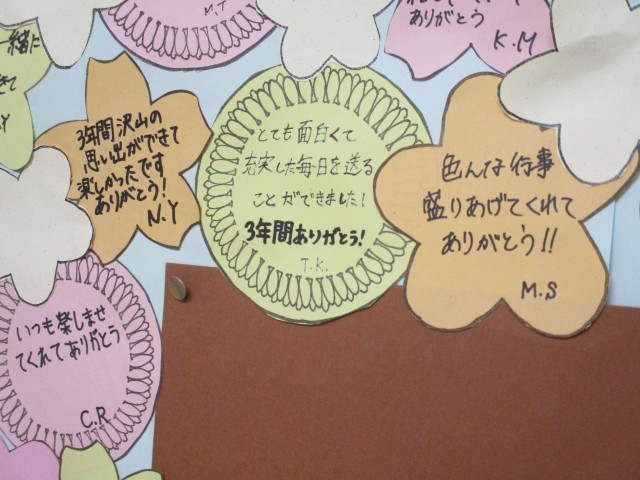 M.T
ありがとう
K.M
緒に
きて
3年間沢山の
思い出ができて
楽しかったです
ありがとう!
N.Y
とても面白くて
充実した毎日を送る
ことができました!
3年間ありがとう!
T.K.
色んな行事
盛りあげてくれて
ありがとう!!
M.S
いつも楽しませ
てくれてありがとう
C.R